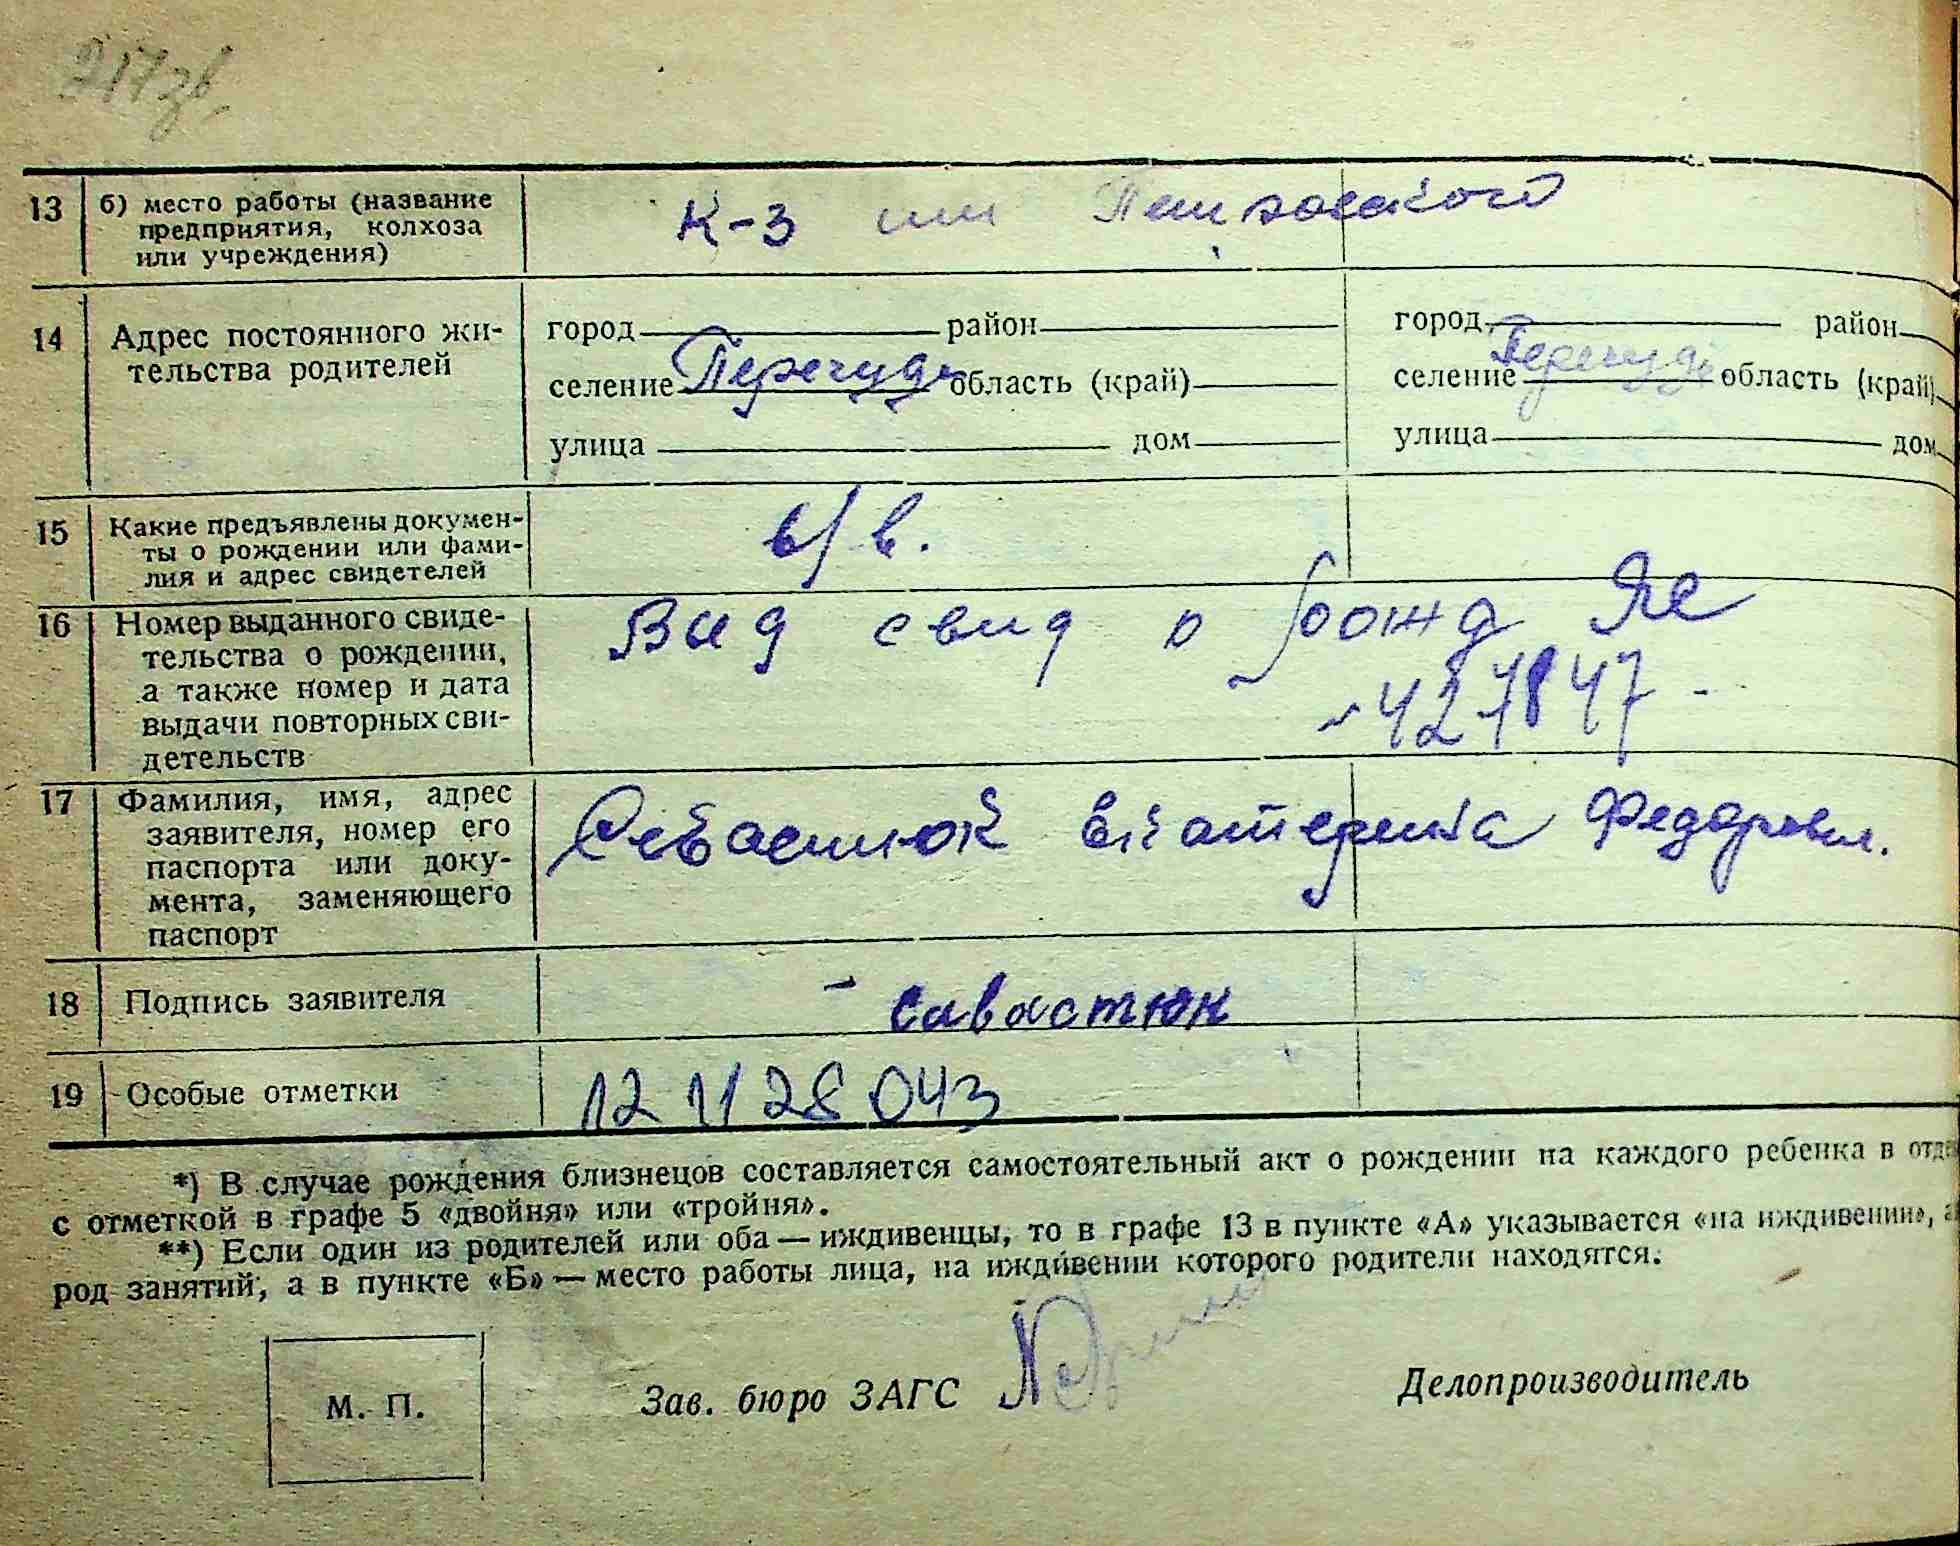 217зв.
13 б) место работы (название предприятия, колхоза или учреждения) к-з им
14 Адрес постоянного жи-
тельства родителей
город район город район
селение Перечудь область (край) селение Перечудь область (край)
улица дом улица дом
15 Какие предъявлены докумен-
ты о рождении или фами-
лия и адрес свидетелей
в/в.
16 Номер выданного свиде-
тельства о рождении,
а также номер и дата
выдачи повторных сви-
детельств
Выд свид о рожд ЯЕ
427847
17 Фамилия, имя, адрес
заявителя, номер его
паспорта или доку-
мента, заменяющего
паспорт
Севастюк Екатерина Федоровн.
18 Подпись заявителя - Савостюк
19 Особые отметки 12 11 28 043
*) В случае рождения близнецов составляется самостоятельный акт о рождении на каждого ребенка в отде
с отметкой в графе 5 «двойня» или «тройня».
**) Если один из родителей или оба — иждивенцы, то в графе 13 в пункте «А» указывается «на иждивении», а
род занятий, а в пункте «Б» — место работы лица, на иждивении которого родители находятся.
М. П. Зав. бюро ЗАГС Делопроизводитель